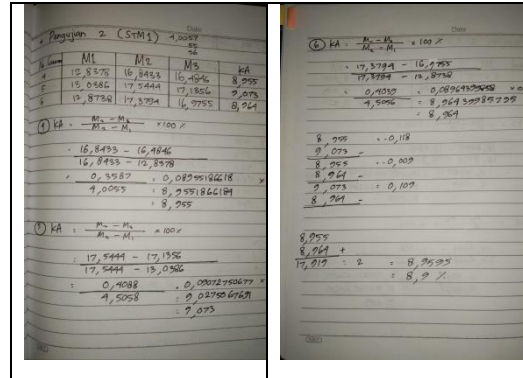 Date
• Pengujian 2 (STM1) 4,0057
55
56
No Cawan M1 M2 M3 KA
4 12,8378 16,8433 16,4846 8,955
5 13,0386 17,5444 17,1356 9,073
6 12,8738 17,3794 16,9755 8,964
④ KA = M₂ - M₃ / M₂ - M₁ × 100 %
= 16,8433 - 16,4846
16,8433 - 12,8378
= 0,3587 = 0,08955186618 ×
4,0055 = 8,9551866184
= 8,955
⑤ KA = M₂ - M₃ / M₂ - M₁ × 100 %
= 17,5444 - 17,1356
17,5444 - 13,0386
= 0,4088 = 0,09072750677 ×
4,5058 = 9,0275067691
= 9,073
Date
⑥ KA = M₂ - M₃ / M₂ - M₁ × 100 %
= 17,3794 - 16,9755
17,3794 - 12,8738
= 0,4039
4,5056 = 8,96439985795
= 8,964
8,955 = -0,118
9,073 -
8,955 = -0,009
8,964 -
9,073 = 0,109
8,964 -
8,955
8,964 +
17,919 : 2 = 8,9595
= 8,9 %